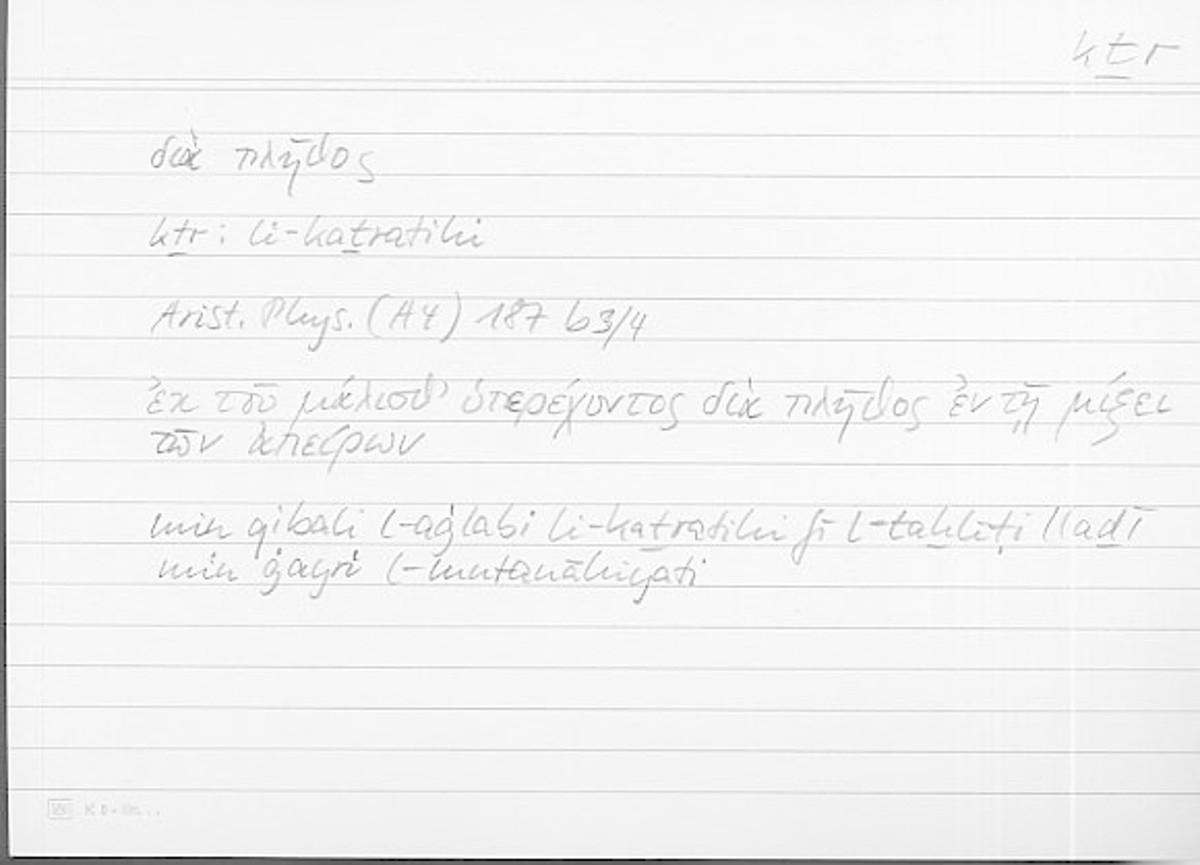 kṯr
διὰ πλῆθος
kṯr : li-kaṯratihi
Arist. Phys. (A4) 187 b3/4
ἐκ τοῦ μάλισθ’ ὑπερέχοντος διὰ πλῆθος ἐν τῇ μίξει
τῶν ἀπείρων
min qibali l-aġlabi li-kaṯratihi fī l-taḫlīṭi llaḏī
min ġayri l-mutanāhiyati